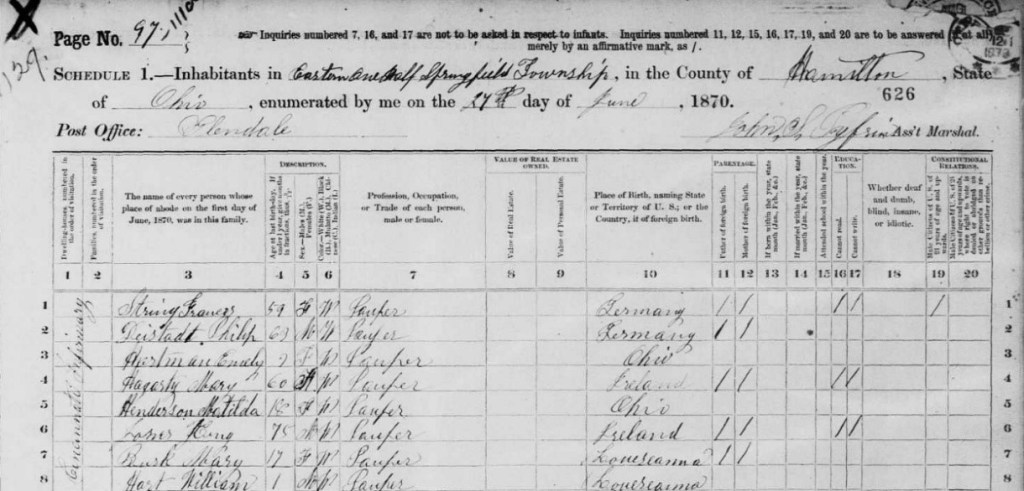 Page No. 97
☞ Inquiries numbered 7, 16, and 17 are not to be asked in respect to infants. Inquiries numbered 11, 12, 15, 16, 17, 19, and 20 are to be answered (if at all)
merely by an affirmative mark, as /.
129.
SCHEDULE 1.—Inhabitants in Eastern One half Springfield Township, in the County of Hamilton, State
626
of Ohio, enumerated by me on the 27th day of June, 1870.
Post Office: Glendale John S. Ass't Marshal.
Dwelling-houses, numbered in the order of visitation.
Families, numbered in the order of visitation.
The name of every person whose place of abode on the first day of June, 1870, was in this family.
DESCRIPTION.
Age at last birth-day. If under 1 year, give months in fractions, thus, 3/12.
Sex.—Males (M.), Females (F.)
Color.—White (W.), Black (B.), Mulatto (M.), Chinese (C.), Indian (I.)
Profession, Occupation, or Trade of each person, male or female.
VALUE OF REAL ESTATE OWNED.
Value of Real Estate.
Value of Personal Estate.
Place of Birth, naming State or Territory of U. S.; or the Country, if of foreign birth.
PARENTAGE.
Father of foreign birth.
Mother of foreign birth.
If born within the year, state month (Jan., Feb., &c.)
If married within the year, state month (Jan., Feb., &c.)
Attended school within the year.
EDUCATION.
Cannot read.
Cannot write.
Whether deaf and dumb, blind, insane, or idiotic.
CONSTITUTIONAL RELATIONS.
1 2 3 4 5 6 7 8 9 10 11 12 13 14 15 16 17 18 19 20
Cincinnati Infirmary
1 String Frances 59 F W Pauper Germany / / / / / 1
2 Deistadt Philip 63 M W Pauper Germany / / 2
3 Hartman 7 F W Pauper Ohio 3
4 Hagerty Mary 60 F W Pauper Ireland / / / / 4
5 Henderson Matilda F W Pauper Ohio 5
6 75 M W Pauper Ireland / / / / 6
7 Mary 17 F W Pauper Loueseanna / / 7
8 Hart William 1 M W Pauper Loueseanna 8